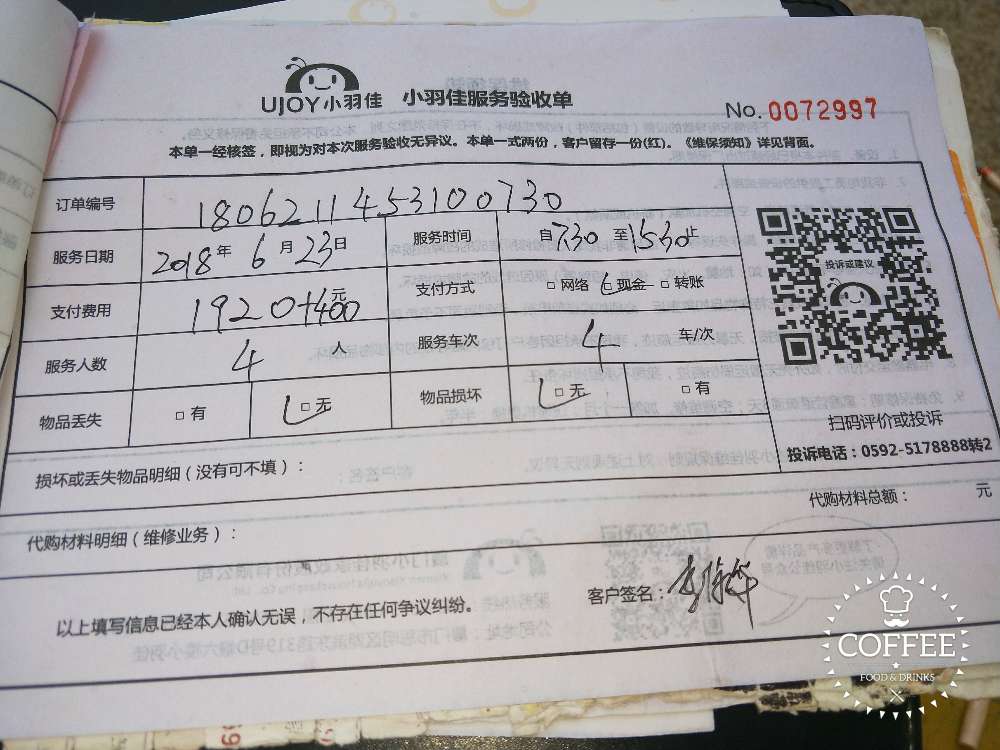 UJOY小羽佳 小羽佳服务验收单
No. 0072997
本单一经核签，即视为对本次服务验收无异议。本单一式两份，客户留存一份(红)。《维保须知》详见背面。
订单编号 1806211453100730
服务日期 2018年 6月 23日 服务时间 自 7:30 至 15:30 止
支付费用 1920+400元 支付方式 □网络 □现金 □转账
服务人数 4 人 服务车次 4 车/次
物品丢失 □有 □无 物品损坏 □无 □有
投诉或建议
扫码评价或投诉
投诉电话：0592-5178888转2
损坏或丢失物品明细（没有可不填）：
代购材料明细（维修业务）： 代购材料总额： 元
以上填写信息已经本人确认无误，不存在任何争议纠纷。 客户签名：
COFFEE
FOOD & DRINKS